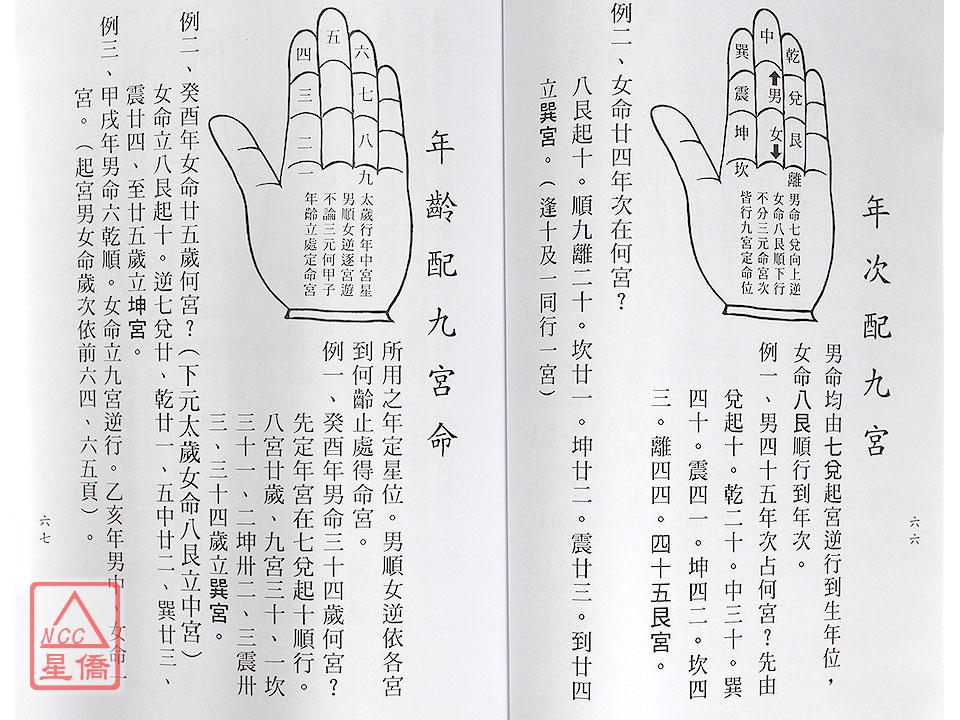 年次配九宮
男命均由七兌起宮逆行到生年位，
女命八艮順行到年次。
例一、男四十五年次占何宮？先由
兌起十。乾二十。中三十。巽
四十。震四一。坤四二。坎四
三。離四四。四十五艮宮。
中
乾
巽
兌
男
震
艮
女
坤
離
坎
男命七兌向上逆
女命八艮順下行
不分三元命宮次
皆行九宮定命位
例二、女命廿四年次在何宮？
八艮起十。順九離二十。坎廿一。坤廿二。震廿三。到廿四
立巽宮。（逢十及一同行一宮）
六六
年齡配九宮命
所用之年定星位。男順女逆依各宮
到何齡止處得命宮。
例一、癸酉年男命三十四歲何宮？
先定年宮在七兌起十順行。
八宮廿歲、九宮三十、一坎
三十一、二坤卅二、三震卅
三、三十四歲立巽宮。
五
六
四
七
三
八
二
九
一
太歲行年中宮星
男順女逆逐宮遊
不論三元何甲子
年齡立處定命宮
例二、癸酉年女命廿五歲何宮？（下元太歲女命八艮立中宮）
女命立八艮起十。逆七兌廿、乾廿一、五中廿二、巽廿三、
震廿四、至廿五歲立坤宮。
例三、甲戌年男命六乾順。女命立九宮逆行。乙亥年男中、女命一
宮。（起宮男女命歲次依前六四、六五頁）。
六七
NCC
星僑